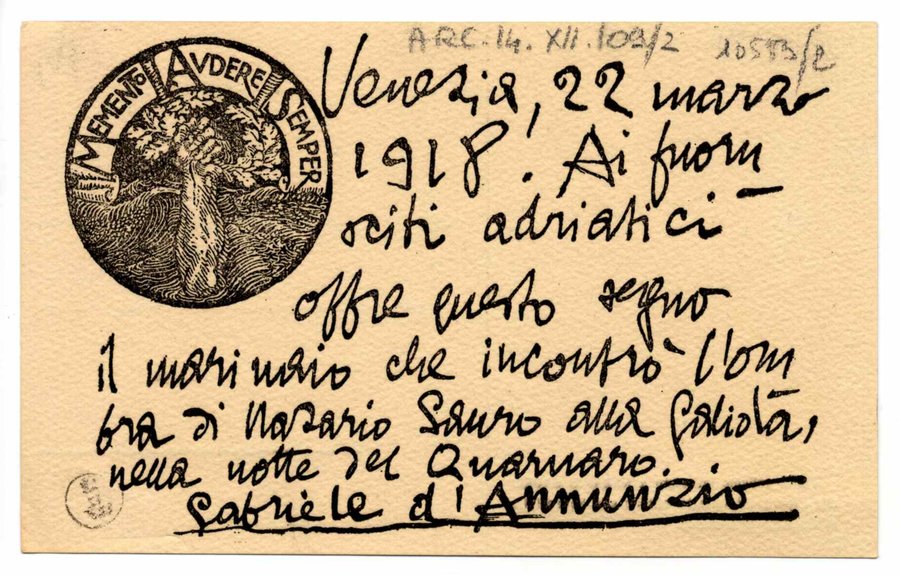 ARC. 14. XII. 109/2 10553/2
MEMENTO AVDERE SEMPER
Venezia, 22 marzo
1918. Ai fuoru
sciti adriatici
offre questo segno
il marinaio che incontrò l'om
bra di Nazario Sauro alla Galiola,
nella notte del Quarnaro.
Gabriele d'Annunzio